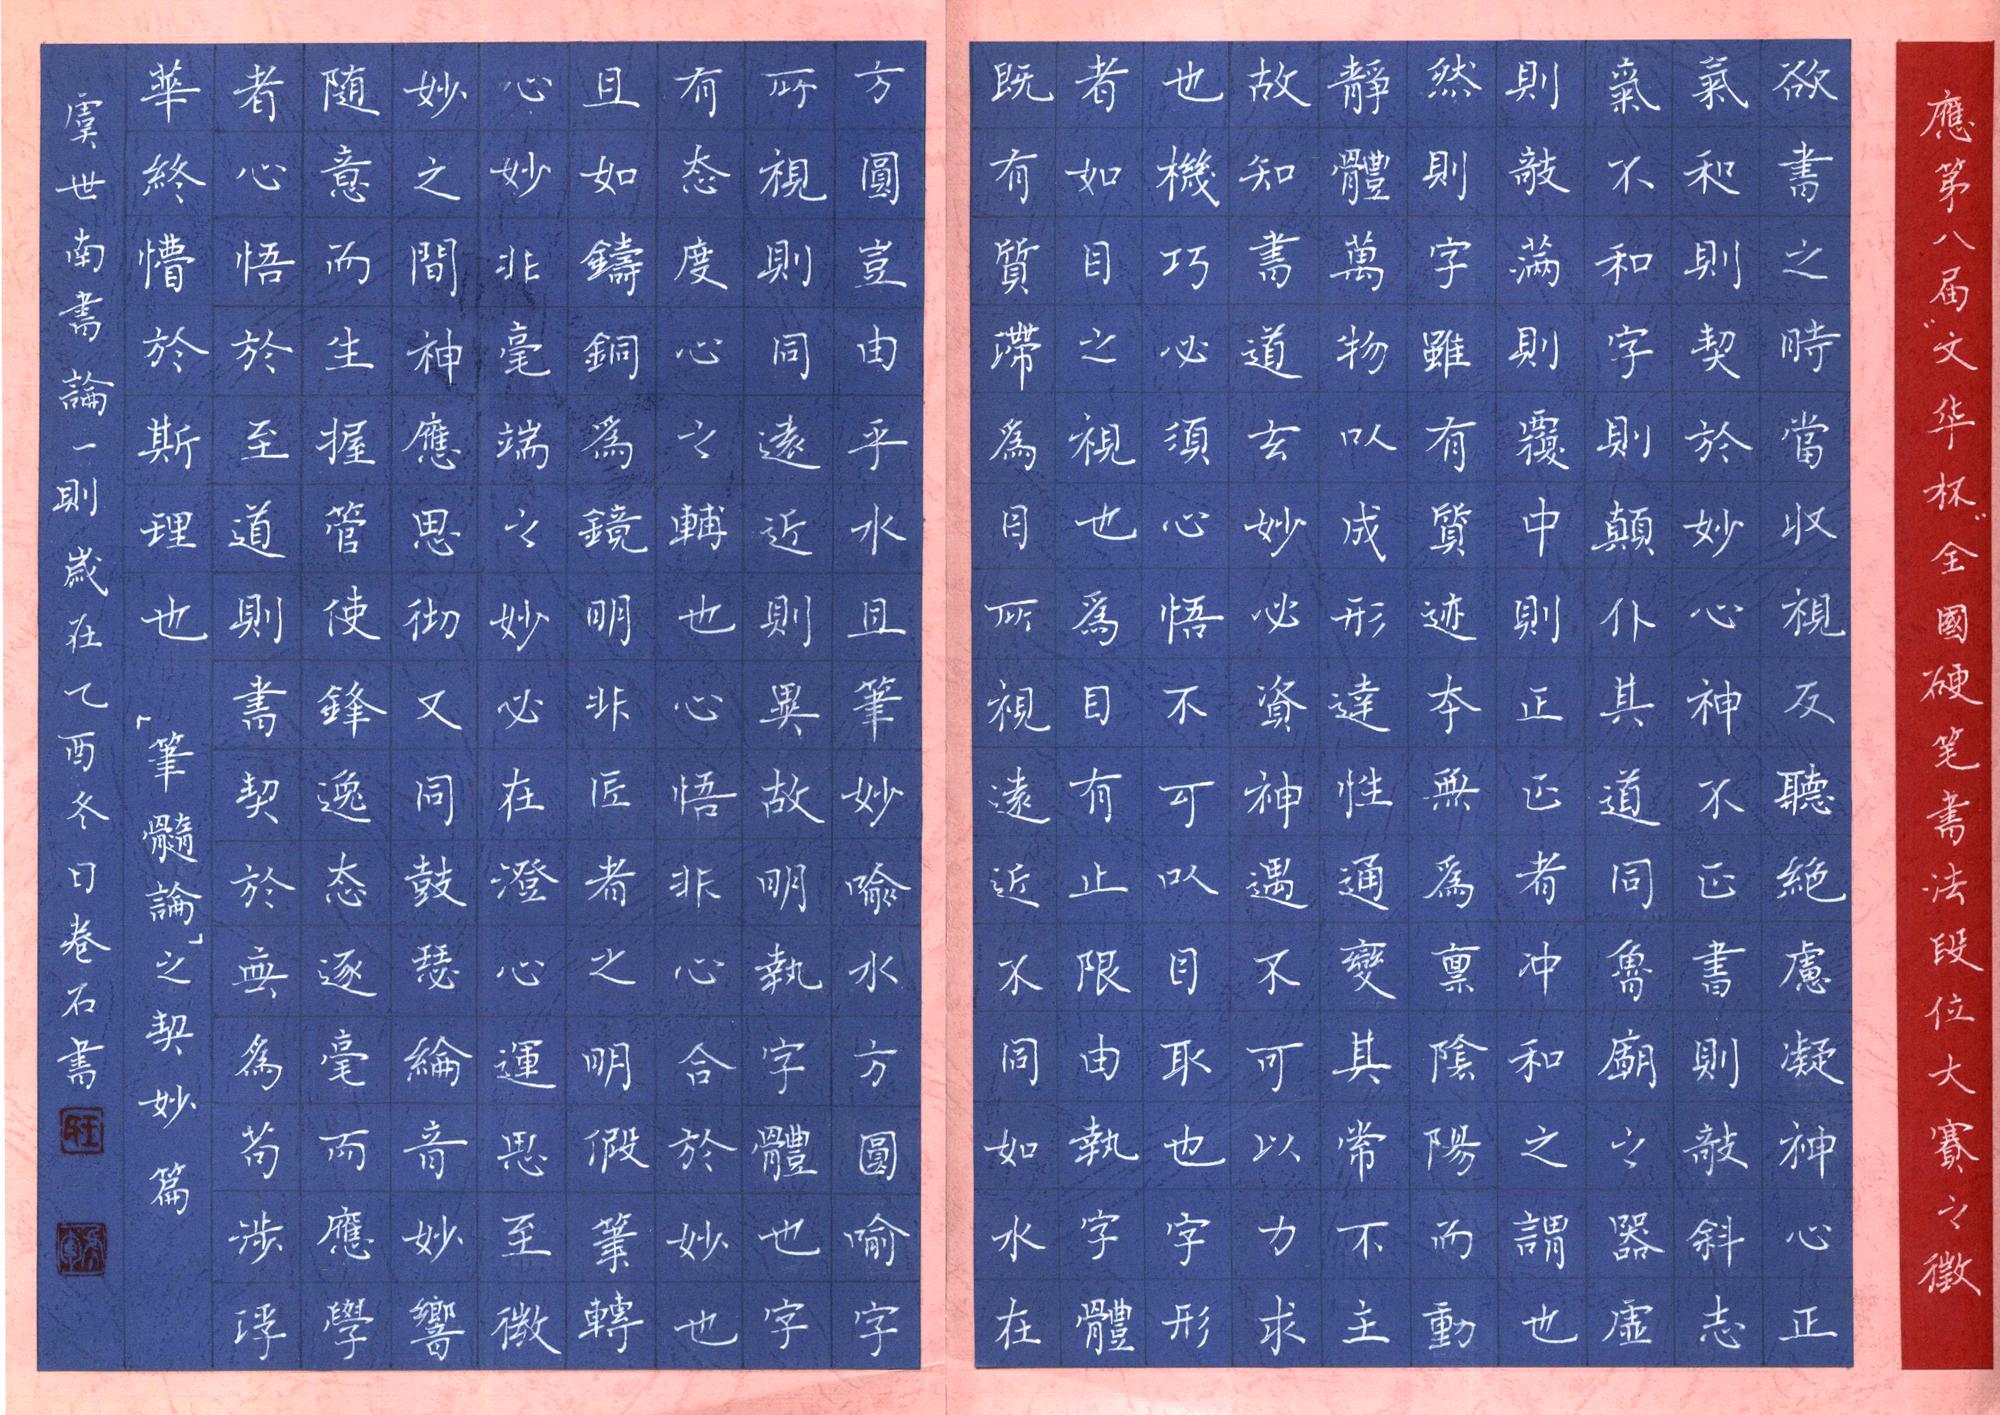 應第八届“文华杯”全國硬笔書法段位大賽之徵
欲書之時當收視反聽絕慮凝神心正
氣和則契於妙心神不正書則敧斜志
氣不和字則顛仆其道同魯廟之器虛
則敧滿則覆中則正正者冲和之謂也
然則字雖有質迹本無爲禀陰陽而動
靜體萬物以成形達性通變其常不主
故知書道玄妙必資神遇不可以力求
也機巧必須心悟不可以目取也字形
者如目之視也爲目有止限由執字體
既有質滯爲目所視遠近不同如水在
方圓豈由乎水且筆妙喻水方圓喻字
所視則同遠近則異故明執字體也字
有态度心之輔也心悟非心合於妙也
且如鑄銅爲鏡明非匠者之明假筆轉
心妙非毫端之妙必在澄心運思至微
妙之間神應思彻又同鼓瑟綸音妙響
随意而生握管使鋒逸态逐毫而應學
者心悟於至道則書契於無爲苟涉浮
華終懵於斯理也「筆髓論」之契妙篇
虞世南書論一則歲在乙酉冬日卷石書